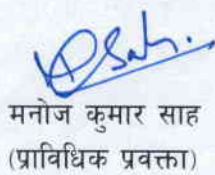 मनोज कुमार साह
(प्राविधिक प्रवक्ता)